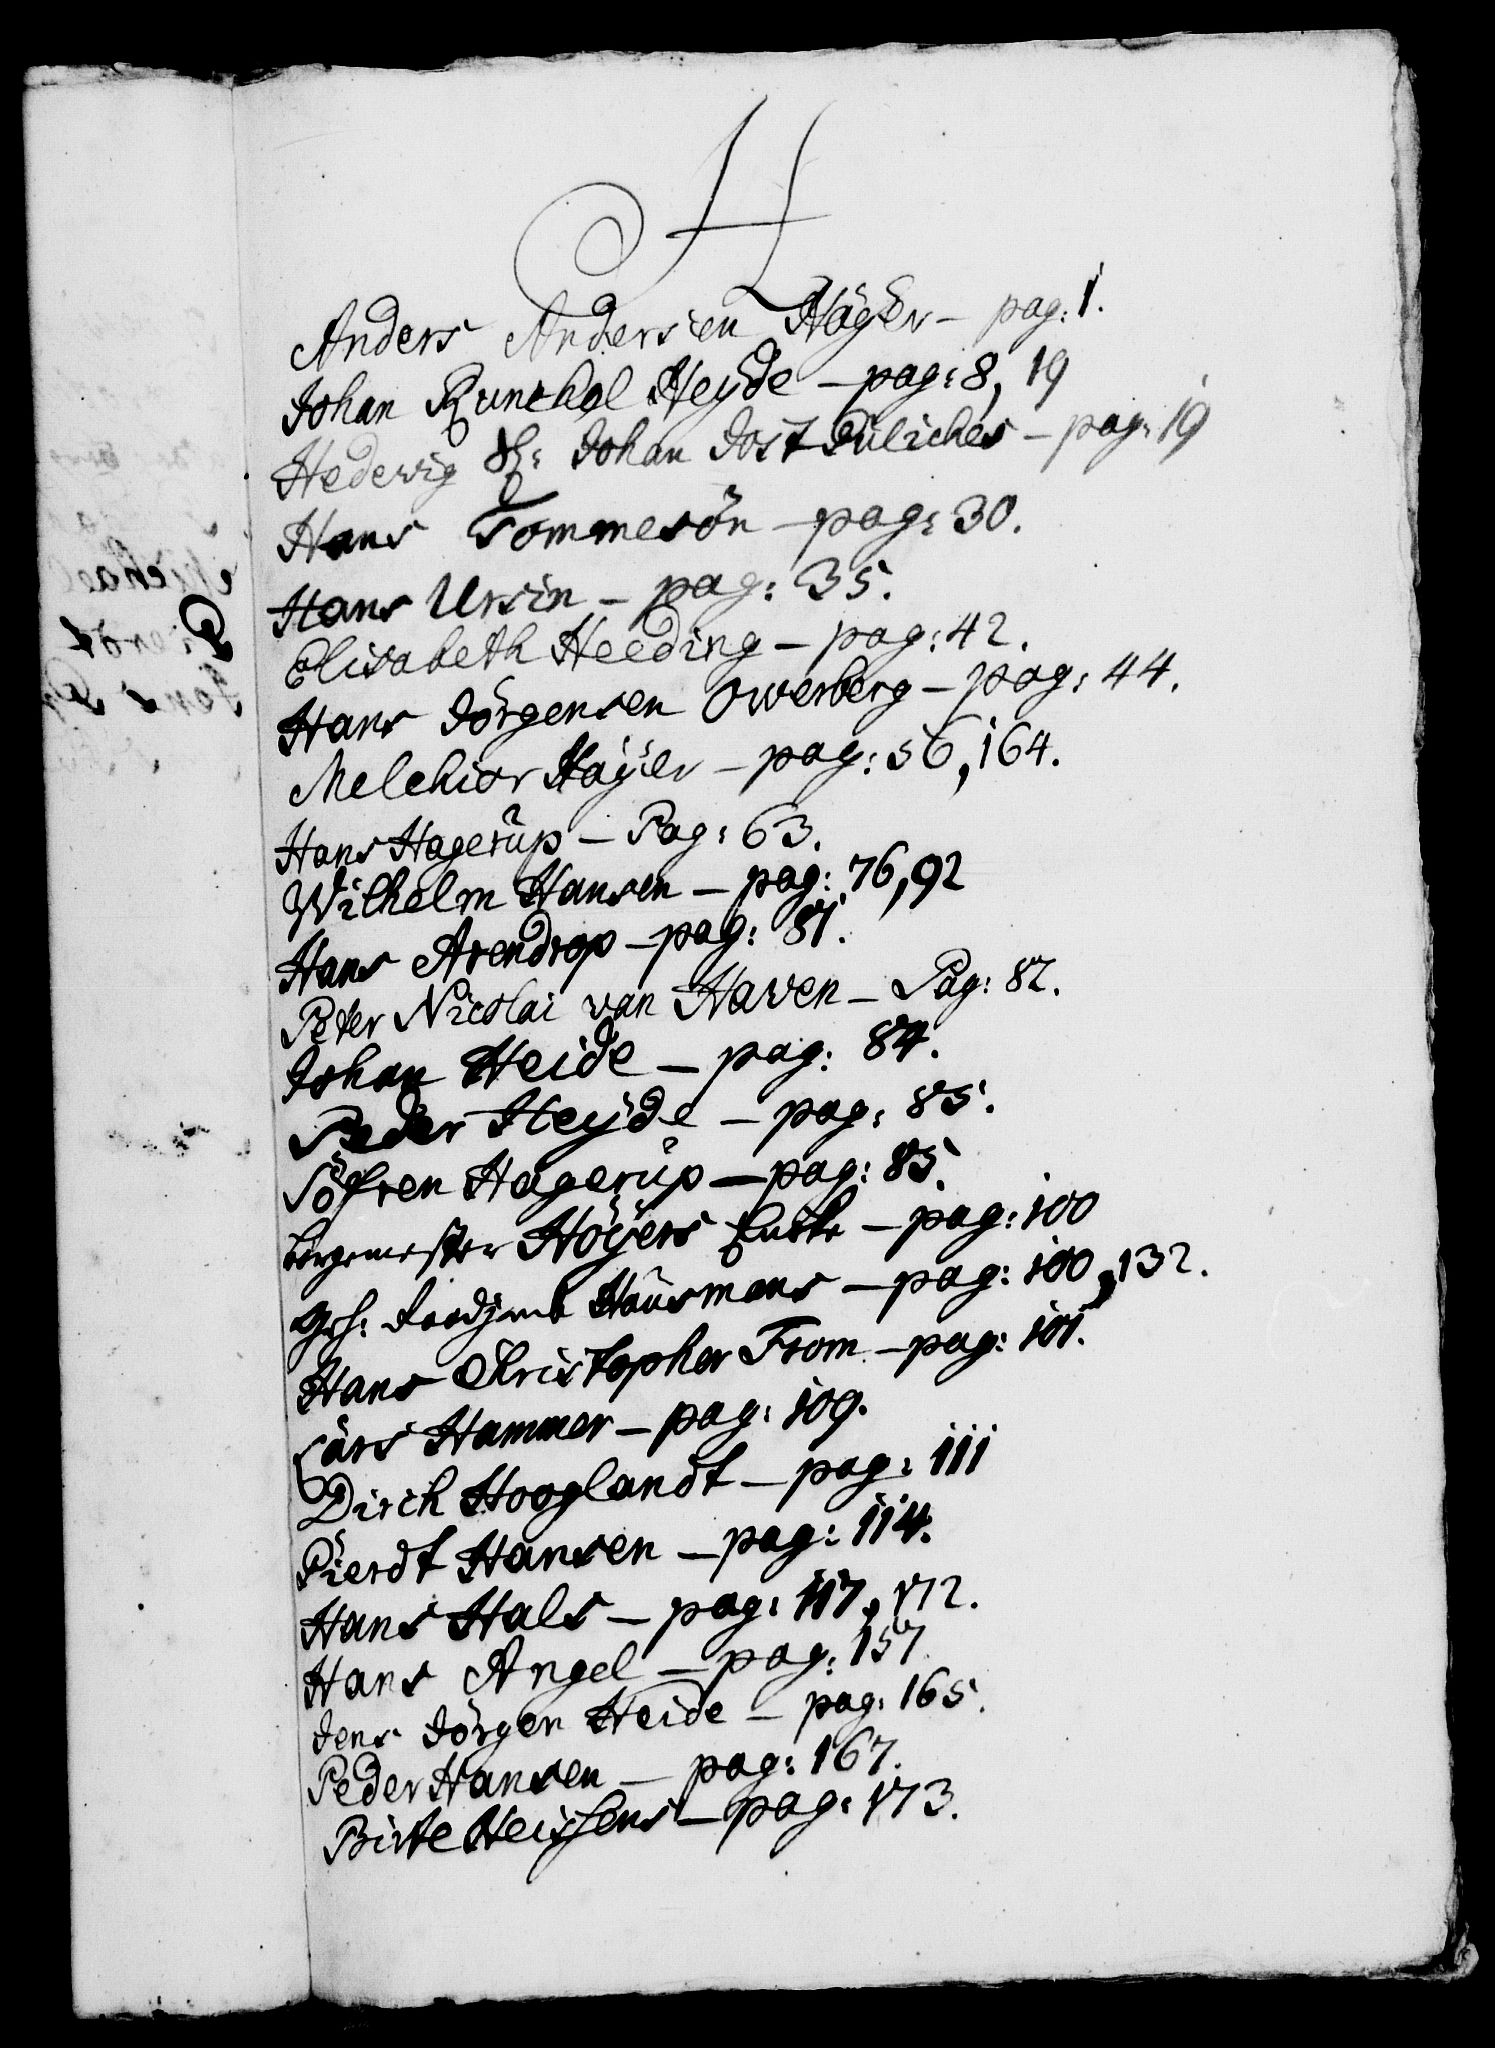 H
Anders Andersen Høÿer – pag: 1.
Johan Runckel Heÿde – pag: 8, 19
Hedewig Johan Jost Düliches – pag: 19
Hans Tommesön – pag: 30.
Hans Ursin – pag: 35.
Elisabeth Heeding – pag: 42.
Hans Jörgensen Owerberg – pag: 44.
Melchior Haÿer – pag: 56, 164.
Hans Hagerüp – Pag: 63.
Wilhelm Hansen – pag: 76, 92
Hans Arendrop – pag: 81.
Peter Nicolai van Haven – Pag: 82.
Johan Heide – pag: 84.
Peder Heÿde – pag: 85.
Söfren Hagerüp – pag: 85.
borgemester Höÿers Enke – pag: 100
Hausmans – pag: 100, 132.
Hans Christopher From – pag: 101.
Lars Hammer – pag: 109.
Dirch Hooglandt – pag: 111
Pierdt Hansen – pag: 114.
Hans Hals – pag: 117, 172.
Hans Angel – pag: 157
Jens Jörgen Heide – pag: 165.
Peder Hansen – pag: 167.
Birte Heissens – pag: 173.